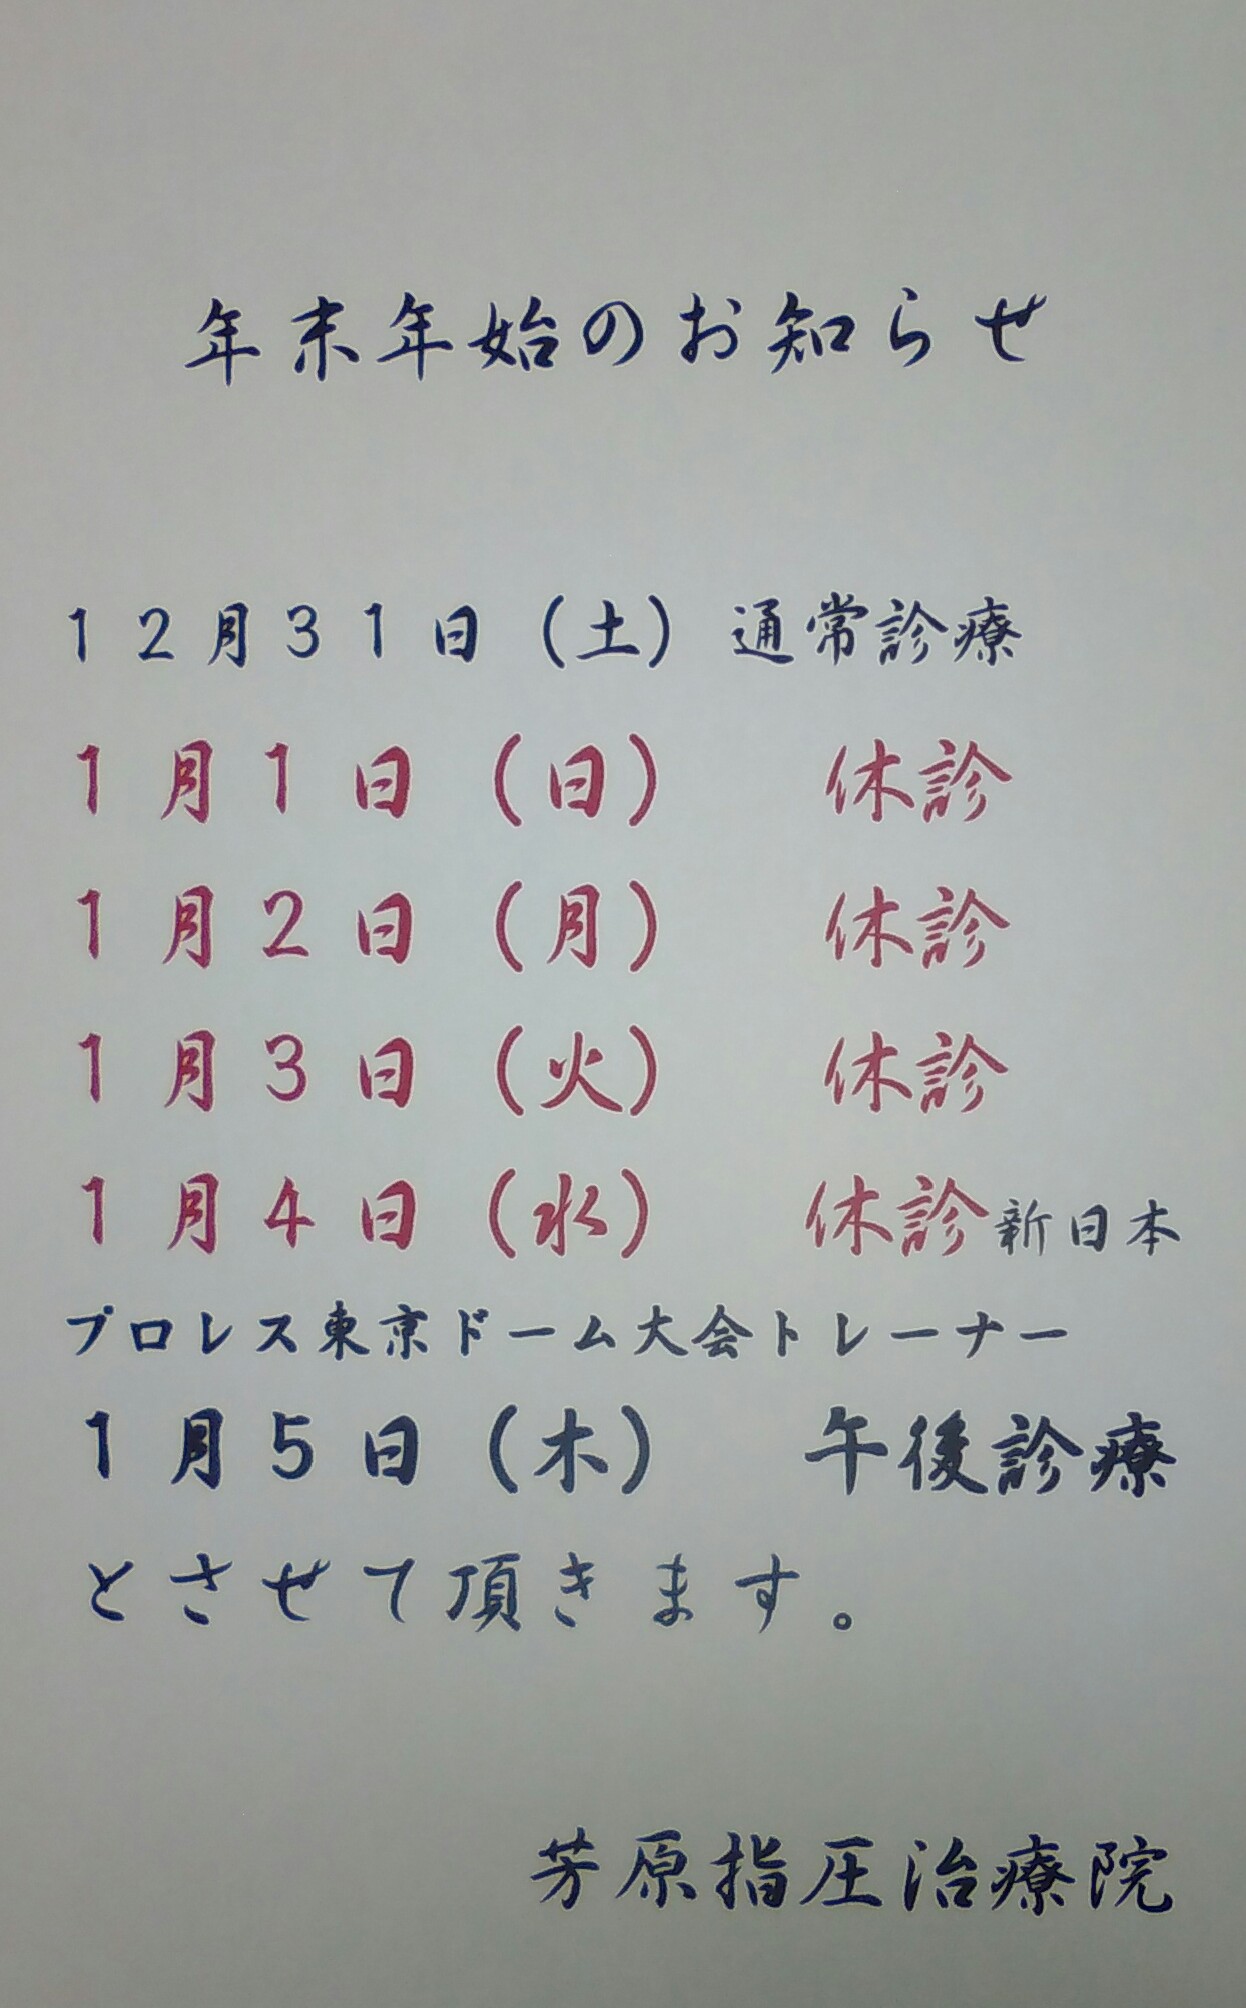 年末年始のお知らせ
１２月３１日（土）通常診療
１月１日（日）　休診
１月２日（月）　休診
１月３日（火）　休診
１月４日（水）　休診新日本
プロレス東京ドーム大会トレーナー
１月５日（木）　午後診療
とさせて頂きます。
芳原指圧治療院